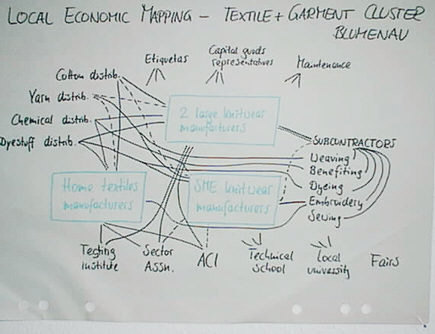 LOCAL ECONOMIC MAPPING – TEXTILE + GARMENT CLUSTER
BLUMENAU
Etiquetas
Capital goods
representatives
Maintenance
Cotton distrib.
Yarn distrib.
Chemical distrib.
Dyestuff distrib.
2 large knitwear
manufacturers
SUBCONTRACTORS
Weaving
Benefiting
Dyeing
Embroidery
Sewing
Home textiles
manufacturers
SME knitwear
manufacturers
Testing
Institute
Sector
Assn.
ACI
Technical
School
Local
university
Fairs